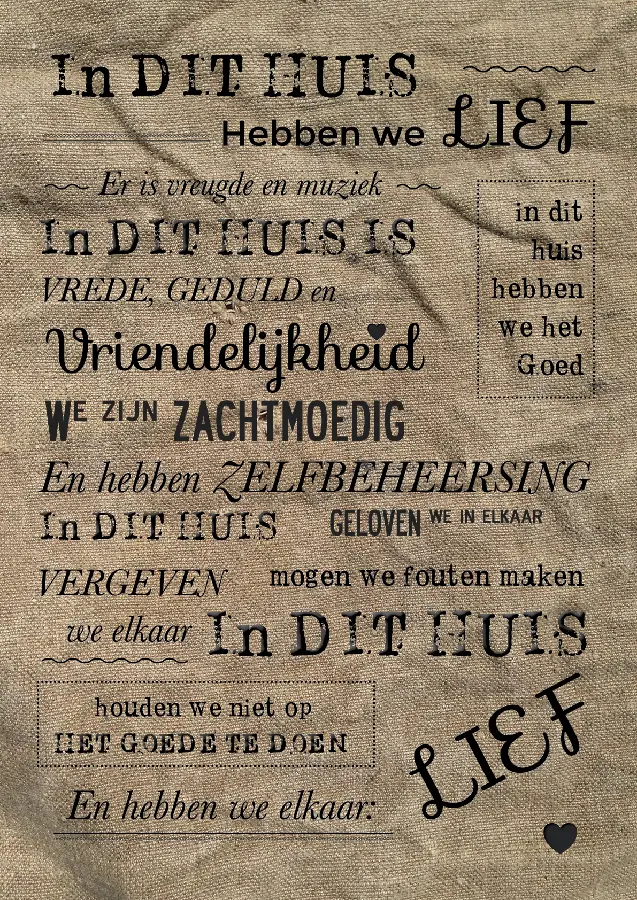 In DIT HUIS
Hebben we LIEF
Er is vreugde en muziek
In DIT HUIS IS
VREDE, GEDULD en
Vriendelijkheid
in dit
huis
hebben
we het
Goed
WE ZIJN ZACHTMOEDIG
En hebben ZELFBEHEERSING
In DIT HUIS
GELOVEN WE IN ELKAAR
VERGEVEN
mogen we fouten maken
we elkaar
In DIT HUIS
houden we niet op
HET GOEDE TE DOEN
En hebben we elkaar:
LIEF